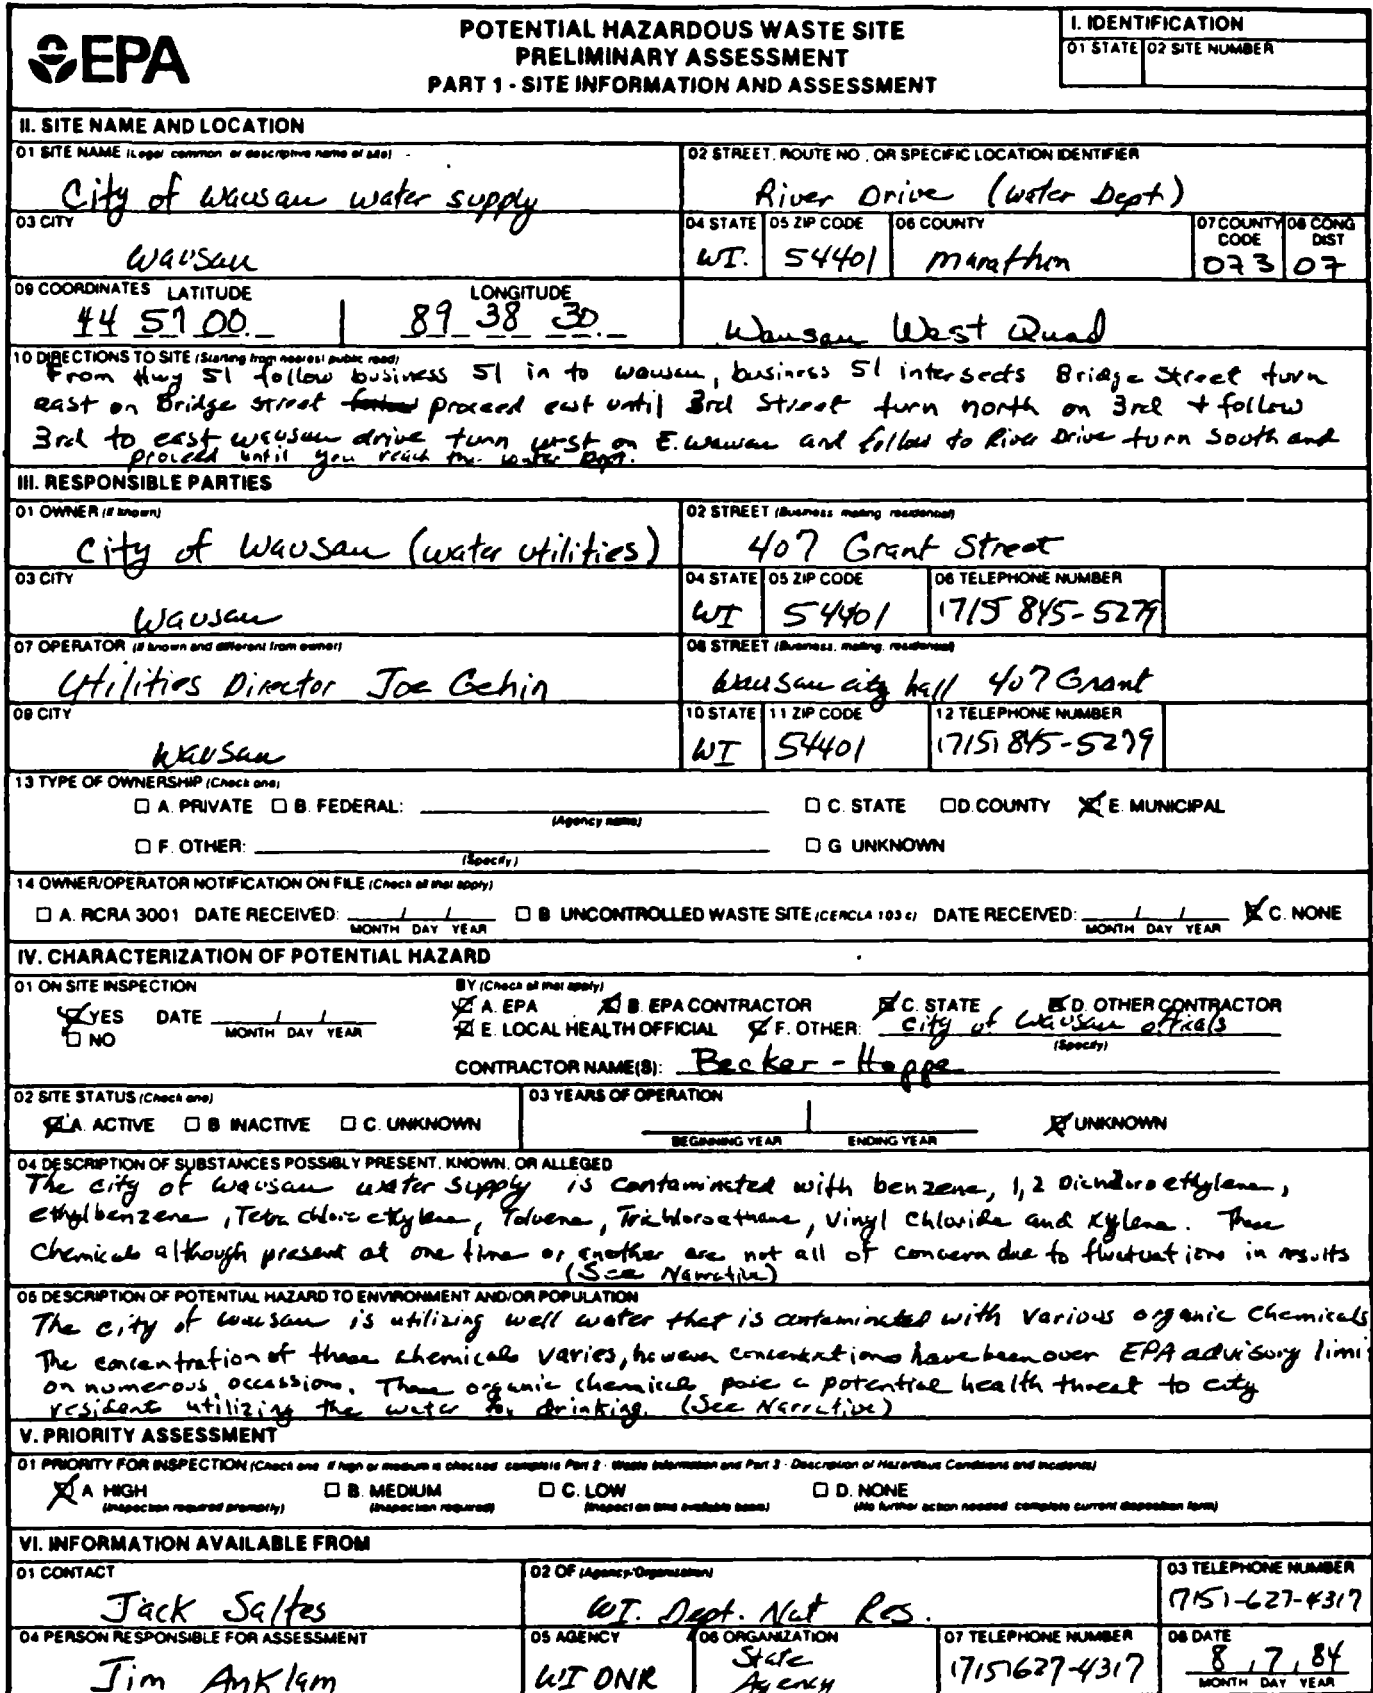 EPA
POTENTIAL HAZARDOUS WASTE SITE
PRELIMINARY ASSESSMENT
PART 1 - SITE INFORMATION AND ASSESSMENT
I. IDENTIFICATION
01 STATE 02 SITE NUMBER
II. SITE NAME AND LOCATION
01 SITE NAME (Legal common or descriptive name of site)
City of Wausau water supply
02 STREET, ROUTE NO., OR SPECIFIC LOCATION IDENTIFIER
River Drive (Water Dept)
03 CITY
Wausau
04 STATE
WI.
05 ZIP CODE
54401
06 COUNTY
Marathon
07 COUNTY CODE
073
08 CONG DIST
07
09 COORDINATES LATITUDE LONGITUDE
44 57 00. 89 38 30.
Wausau West Quad
10 DIRECTIONS TO SITE (Starting from nearest public road)
From Hwy 51 follow business 51 in to Wausau, business 51 intersects Bridge Street turn
east on Bridge street proceed east until 3rd Street turn north on 3rd + follow
3rd to east wausau drive turn west on E. Wausau and follow to River Drive turn South and
proceed until you reach the water Dept.
III. RESPONSIBLE PARTIES
01 OWNER (if known)
City of Wausau (water utilities)
02 STREET (Business mailing residential)
407 Grant Street
03 CITY
Wausau
04 STATE
WI
05 ZIP CODE
54401
06 TELEPHONE NUMBER
(715) 845-5279
07 OPERATOR (if known and different from owner)
Utilities Director Joe Gehin
08 STREET (Business, mailing, residential)
Wausau city hall 407 Grant
09 CITY
Wausau
10 STATE
WI
11 ZIP CODE
54401
12 TELEPHONE NUMBER
(715) 845-5279
13 TYPE OF OWNERSHIP (Check one)
A. PRIVATE B. FEDERAL: (Agency name) C. STATE D. COUNTY E. MUNICIPAL
F. OTHER: (Specify) G UNKNOWN
14 OWNER/OPERATOR NOTIFICATION ON FILE (Check all that apply)
A. RCRA 3001 DATE RECEIVED: / / B UNCONTROLLED WASTE SITE (CERCLA 103 c) DATE RECEIVED: / / C. NONE
MONTH DAY YEAR MONTH DAY YEAR
IV. CHARACTERIZATION OF POTENTIAL HAZARD
01 ON SITE INSPECTION
YES DATE / /
NO MONTH DAY YEAR
BY (Check all that apply)
A. EPA B. EPA CONTRACTOR C. STATE D. OTHER CONTRACTOR
E. LOCAL HEALTH OFFICIAL F. OTHER: City of Wausau officals
(Specify)
CONTRACTOR NAME(S): Becker-Hoppe
02 SITE STATUS (Check one)
A. ACTIVE B INACTIVE C. UNKNOWN
03 YEARS OF OPERATION
BEGINNING YEAR ENDING YEAR UNKNOWN
04 DESCRIPTION OF SUBSTANCES POSSIBLY PRESENT, KNOWN, OR ALLEGED
The city of Wausau water supply is contaminated with benzene, 1,2 Dichloroethylene,
ethylbenzene, Tetrachloroethylene, Toluene, Trichloroethane, Vinyl Chloride and Xylene. These
Chemicals although present at one time or another are not all of concern due to fluctuations in results
(See Narrative)
05 DESCRIPTION OF POTENTIAL HAZARD TO ENVIRONMENT AND/OR POPULATION
The city of Wausau is utilizing well water that is contaminated with various organic chemicals
The concentration of these chemicals varies, however concentrations have been over EPA advisory limi
on numerous occassions. These organic chemicals pose a potential health threat to city
resident utilizing the water for drinking. (See Narrative)
V. PRIORITY ASSESSMENT
01 PRIORITY FOR INSPECTION (Check one. If high or medium is checked, complete Part 2 - Waste Information and Part 3 - Description of Hazardous Conditions and Incidents)
A HIGH B. MEDIUM C. LOW D. NONE
(Inspection required promptly) (Inspection required) (Inspect on time available basis) (No further action needed, complete current disposition form)
VI. INFORMATION AVAILABLE FROM
01 CONTACT
Jack Saltes
02 OF (Agency/Organization)
WI. Dept. Nat Res.
03 TELEPHONE NUMBER
(715)-627-4317
04 PERSON RESPONSIBLE FOR ASSESSMENT
Jim Anklam
05 AGENCY
WI DNR
06 ORGANIZATION
State
Agency
07 TELEPHONE NUMBER
(715) 627-4317
08 DATE
8 / 7 / 84
MONTH DAY YEAR